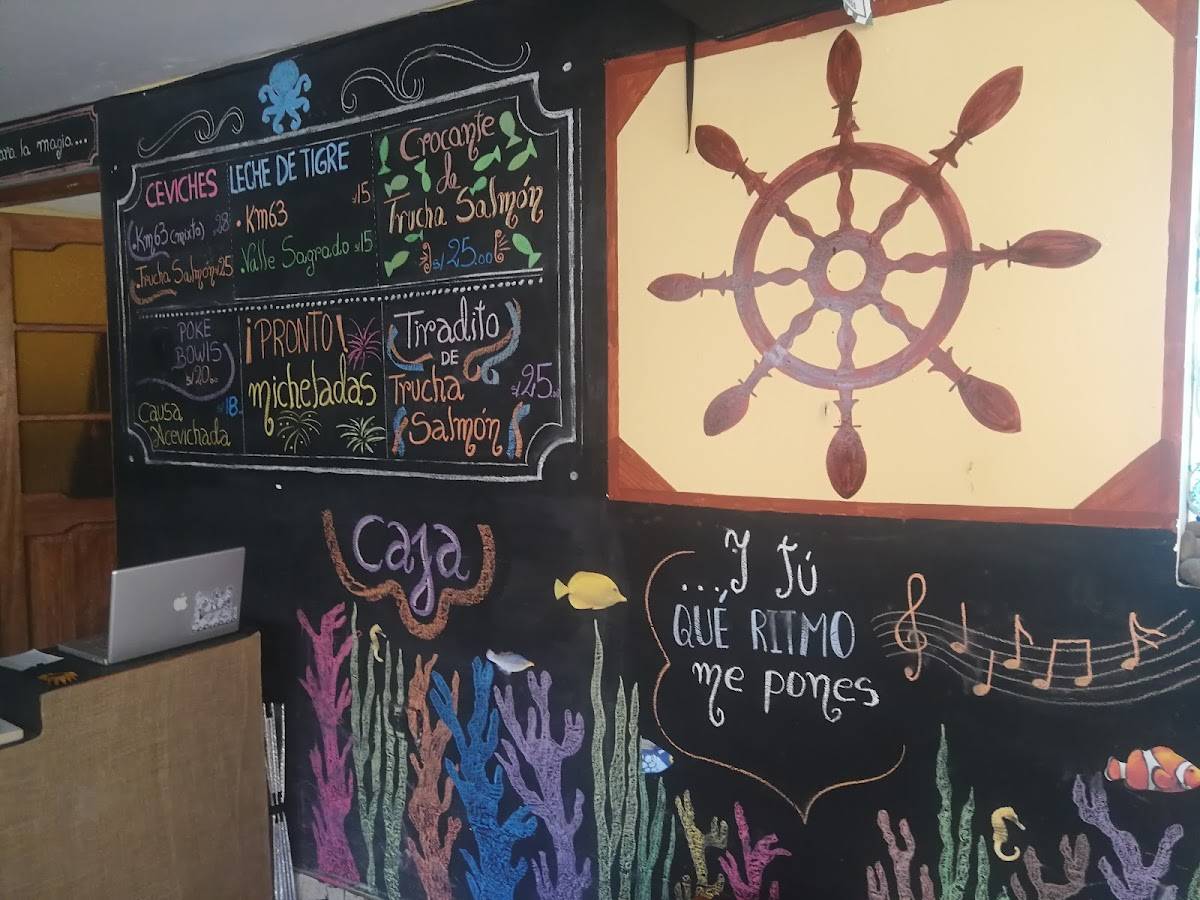 ara la magia...
CEVICHES
• Km63 (mixto) s/28
• Trucha Salmón s/25
LECHE DE TIGRE
s/15
• Km63
• Valle Sagrado s/15
Crocante
de
Trucha Salmón
s/25.00
POKE
BOWlS
s/20.00
Causa s/18.
Acevichada
¡PRONTO!
micheladas
Tiradito
DE
Trucha s/25.00
Salmón
Caja
...Y tú
QUÉ RITMO
me pones